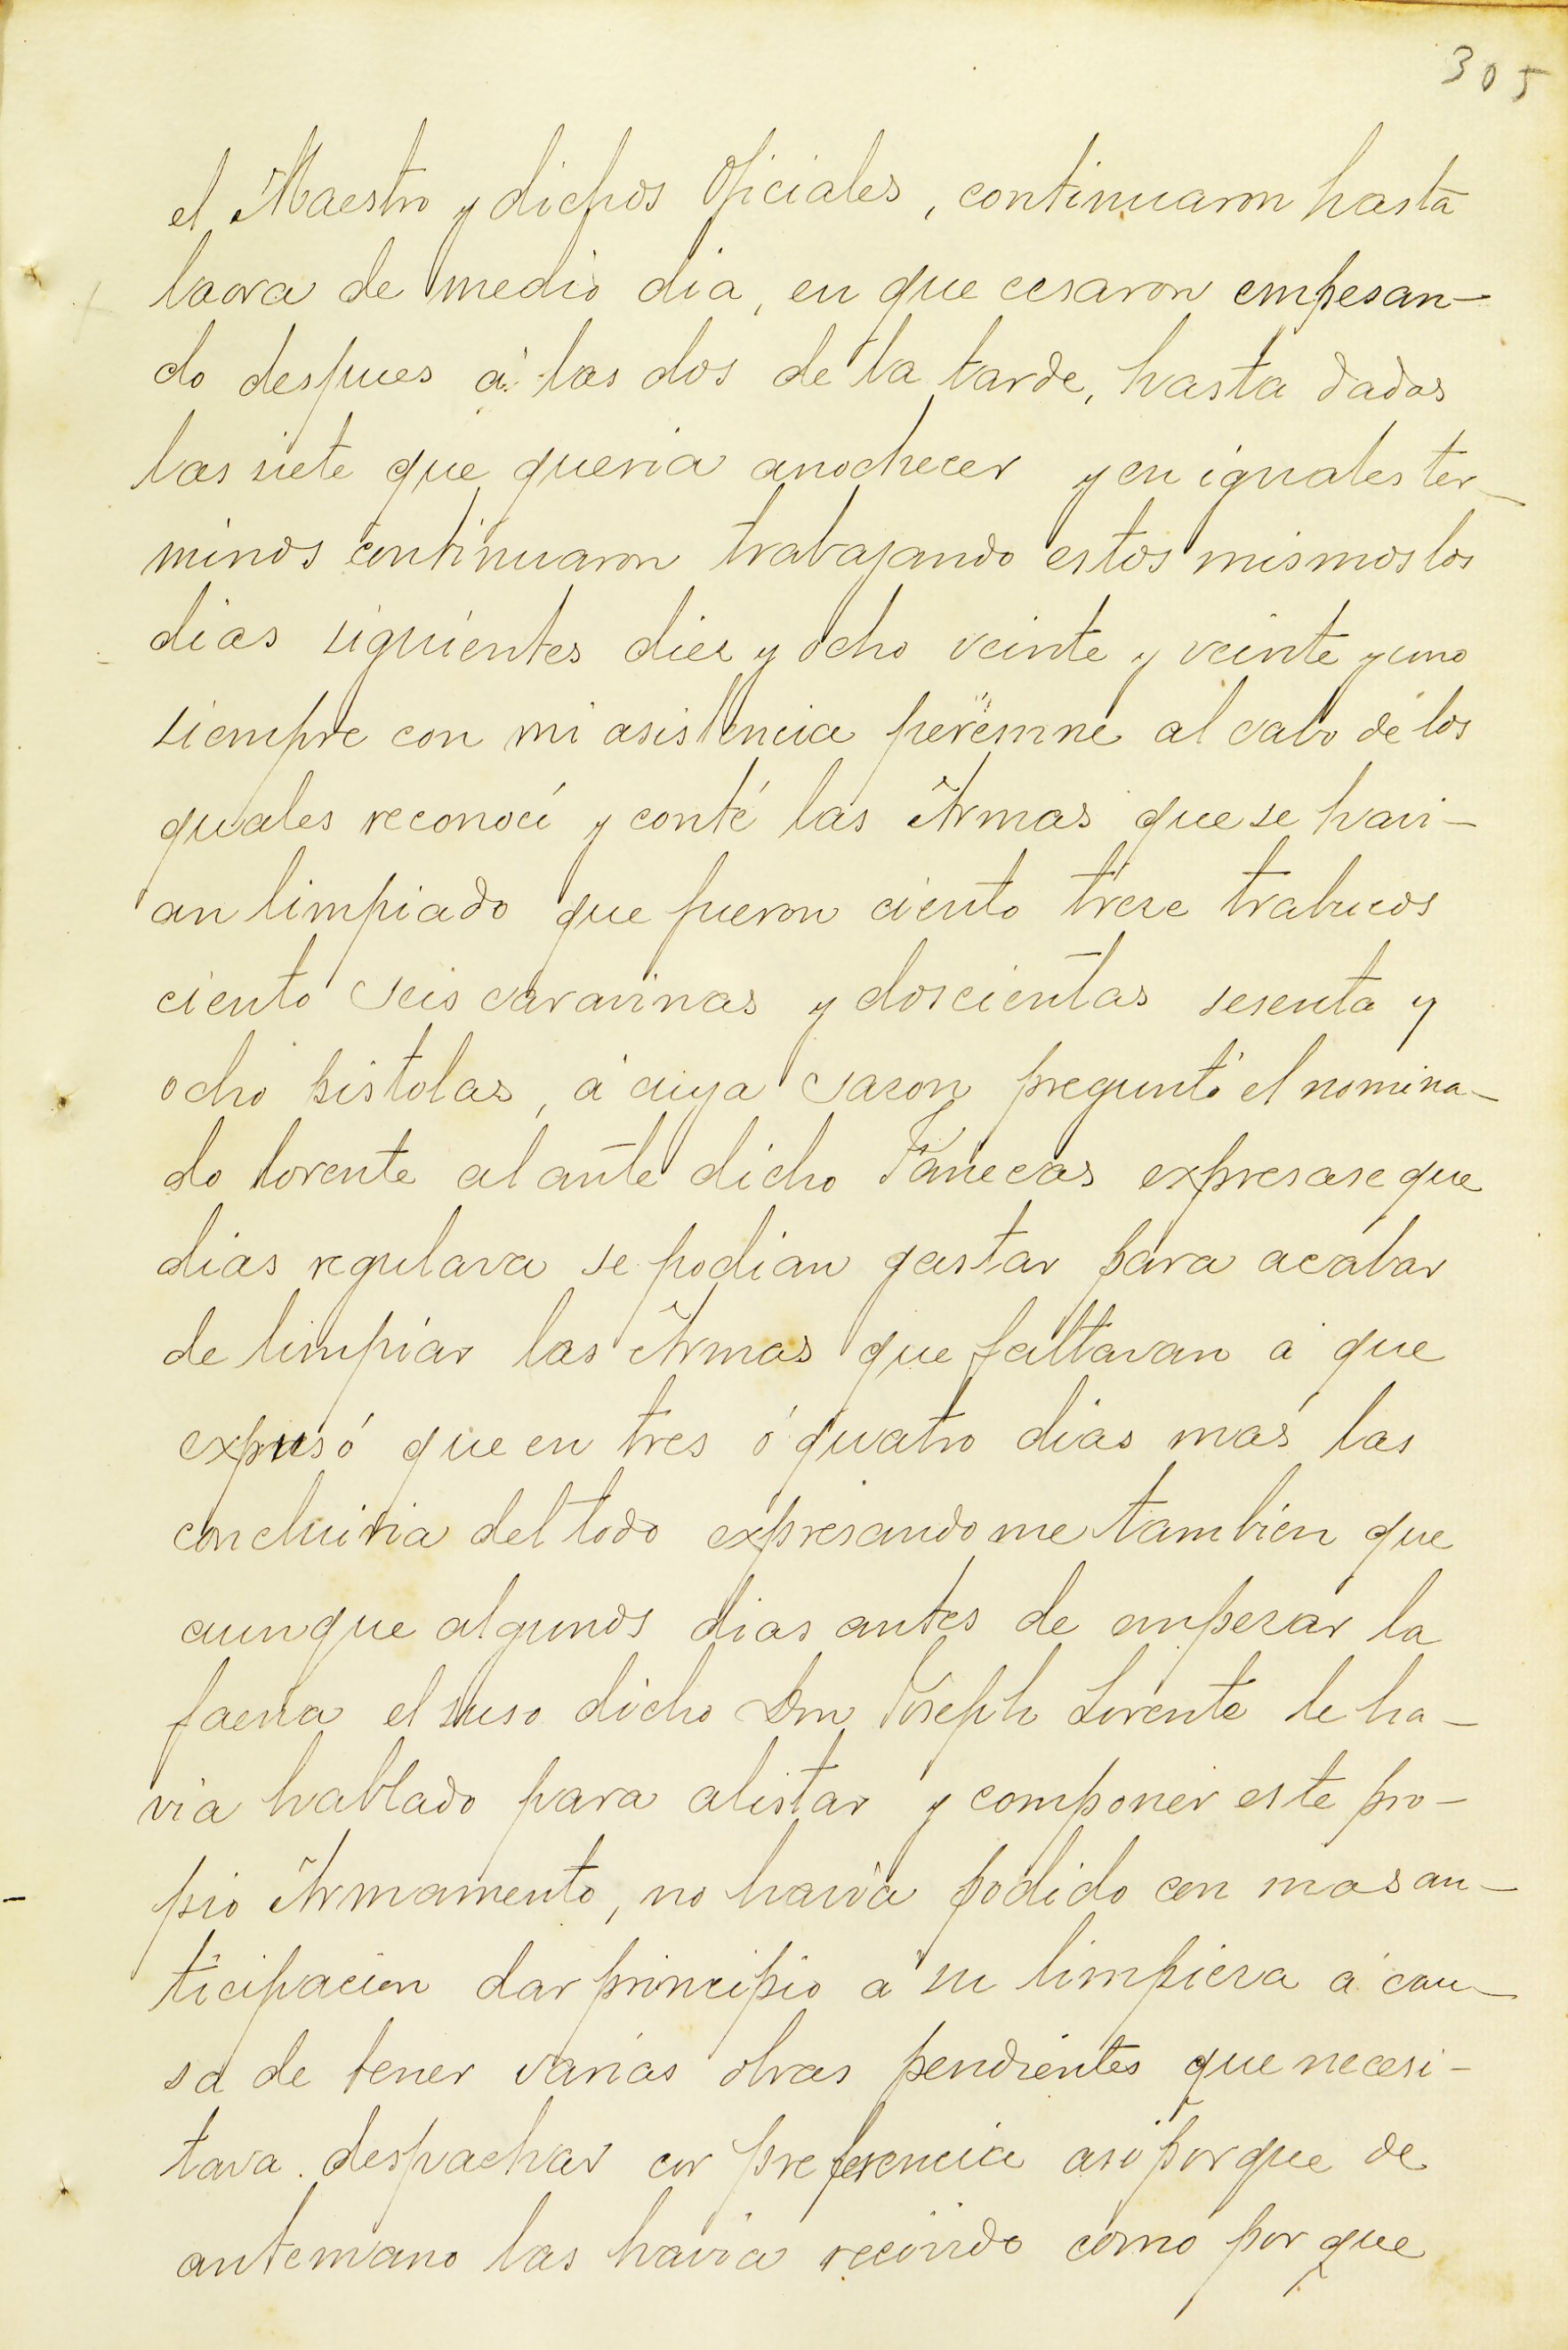 305
el Maestro y dichos Oficiales, continuaron hasta
laora de medio dia, en que cesaron empesan-
do despues á las dos de la tarde, hasta dadas
las siete que queria anochecer y en iguales ter-
minos continuaron trabajando estos mismos los
dias siguientes diez y ocho veinte y veinte y uno
siempre con mi asistencia peremne al cabo de los
quales reconocí y conté las Armas que se havi-
an limpiado que fueron ciento trese trabucos
ciento seis caravinas y doscientas sesenta y
ocho pistolas, á cuya sazon preguntó el nomina-
do lorente al ante dicho Fanecas expresase que
dias regulava se podian gastar para acabar
de limpiar las Armas que faltavan á que
expusó que en tres ó quatro dias mas las
concluiria del todo expresandome tambien que
aunque algunos dias antes de empezar la
faena el suso dicho Dn Joseph Lorente le ha-
via hablado para alistar y componer este pro-
pio Armamento, no havia podido con mas an-
ticipacion dar principio á su limpieza á cau-
sa de tener varias obras pendientes que necesi-
tava despachar con preferencia asi porque de
antemano las havia recivido como por que